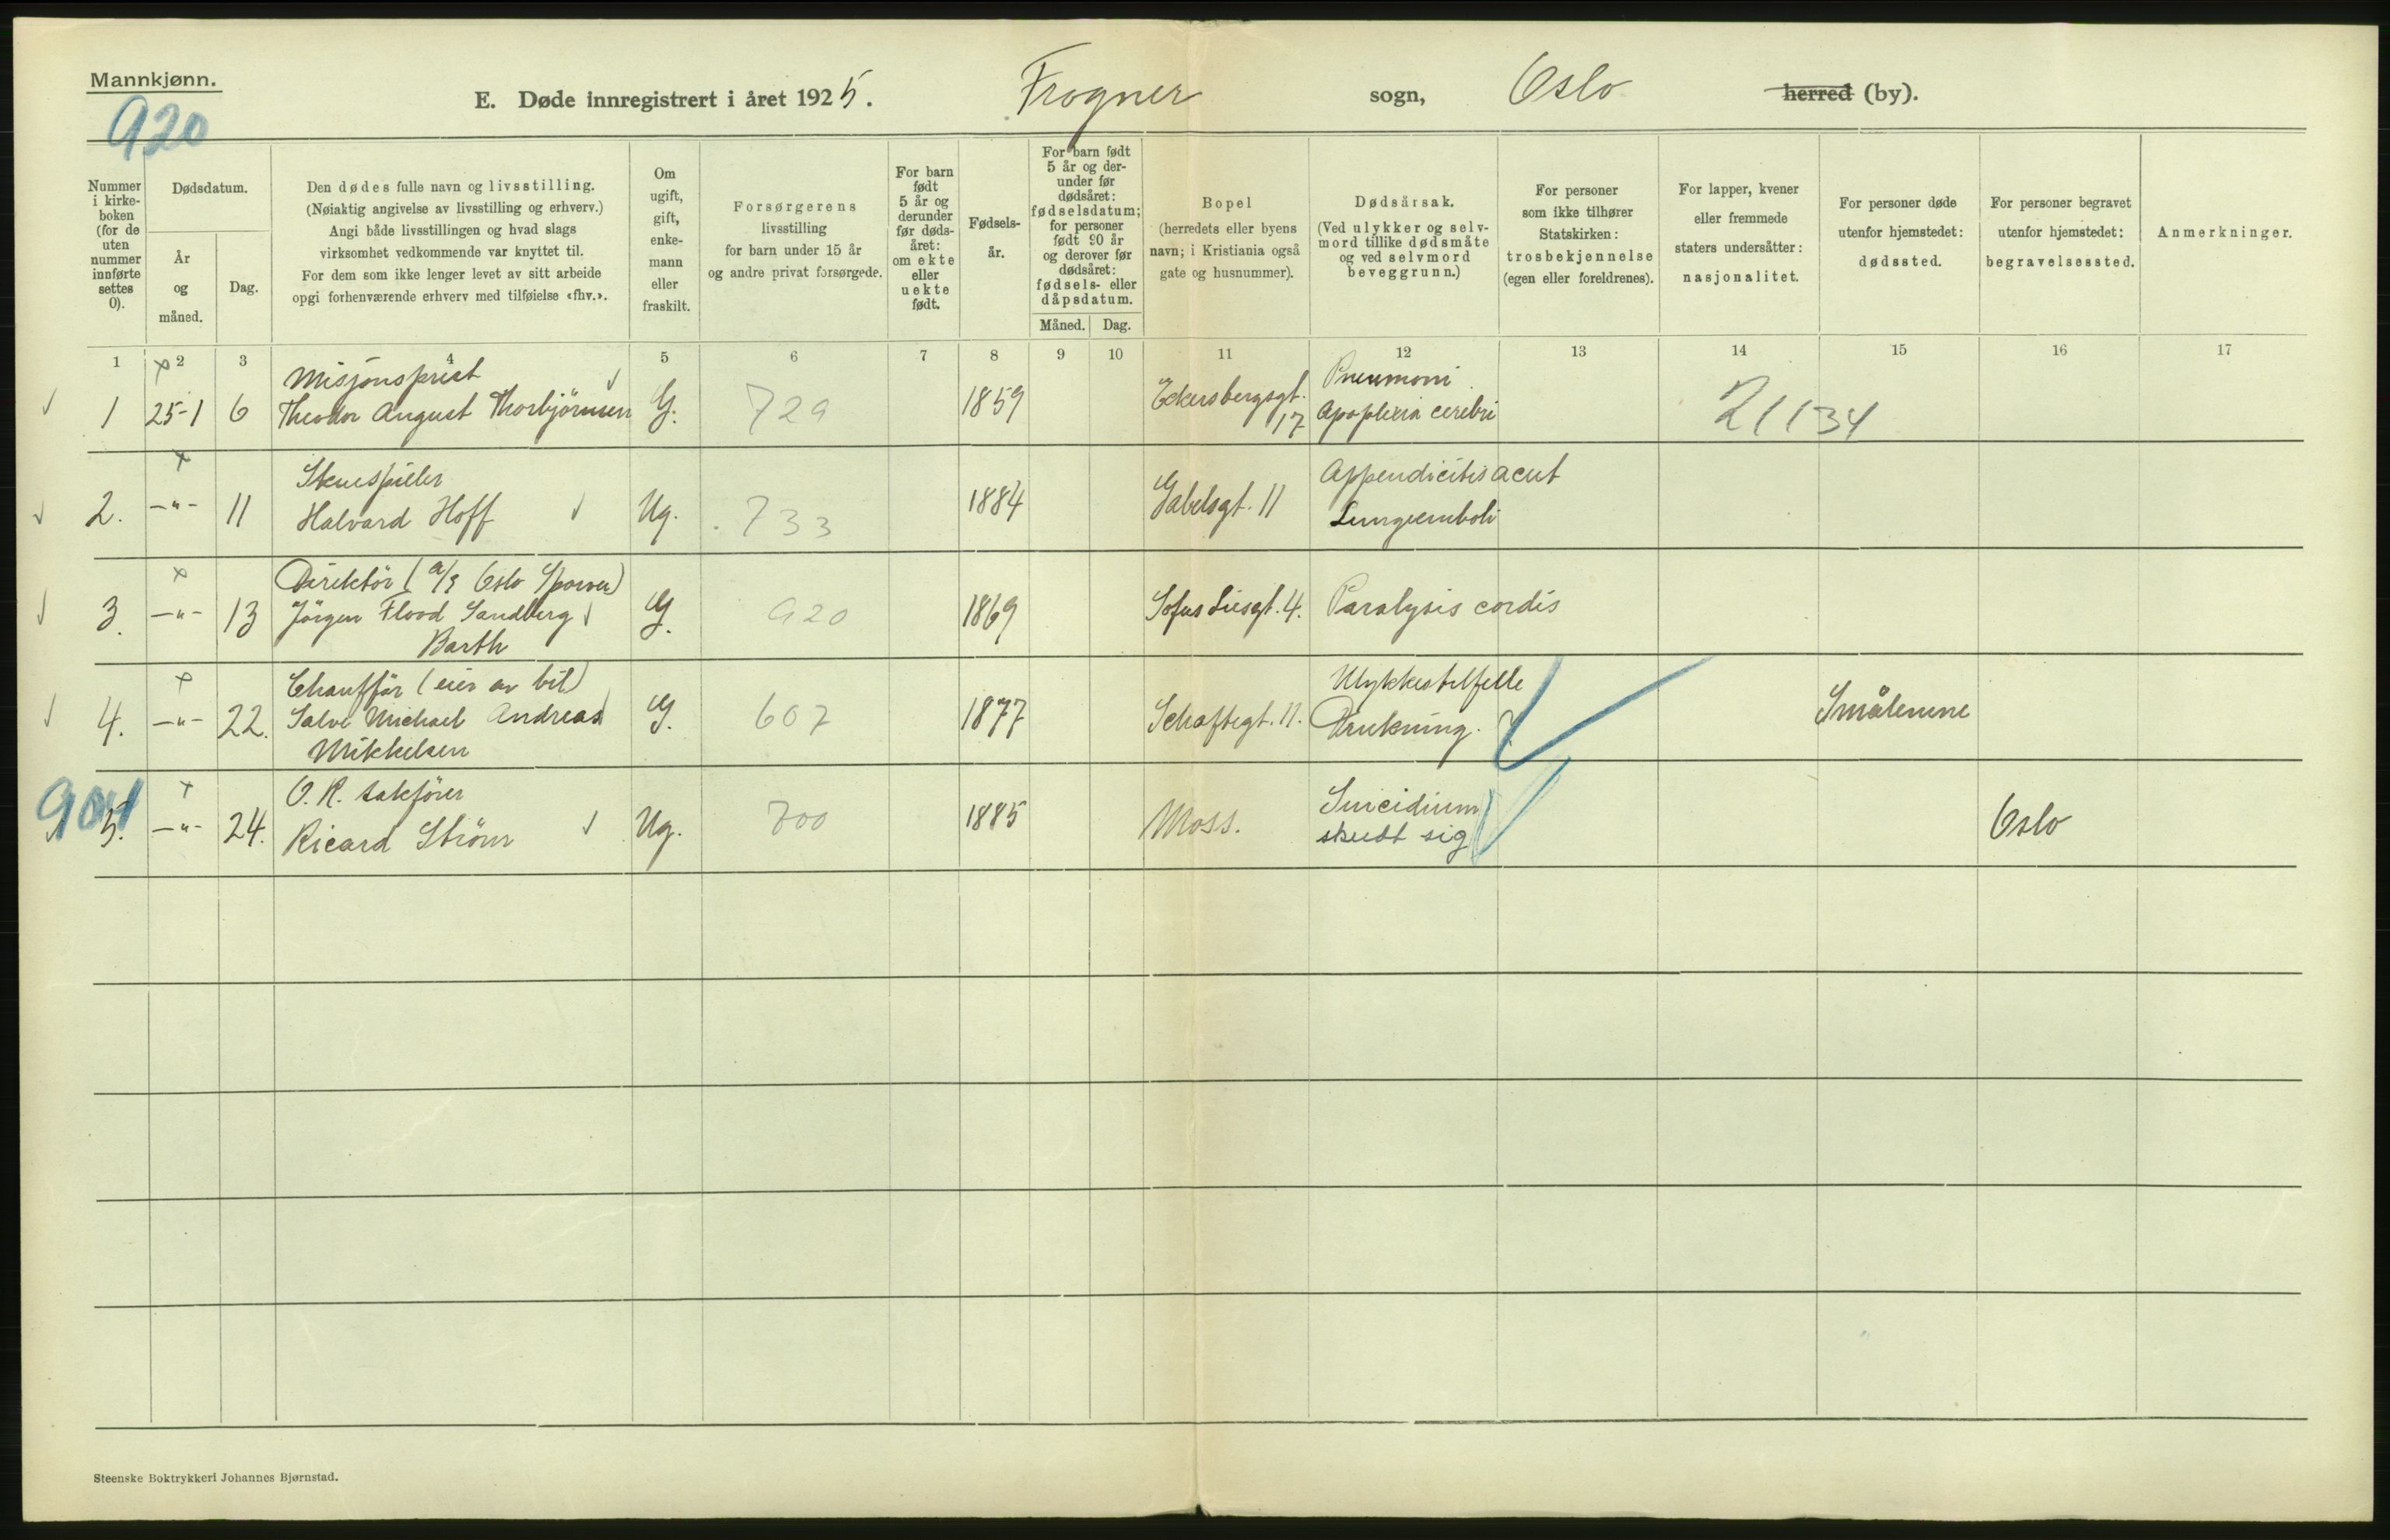 Mannkjønn.
920
E. Døde innregistrert i året 1925. Frogner sogn, Oslo herred (by).
Nummer i kirke- boken (for de uten nummer innførte settes 0).
Dødsdatum.
År og måned.
Dag.
Den dødes fulle navn og livsstilling.
(Nøiaktig angivelse av livsstilling og erhverv.)
Angi både livsstillingen og hvad slags
virksomhet vedkommende var knyttet til.
For dem som ikke lenger levet av sitt arbeide
opgi forhenværende erhverv med tilføielse «fhv.».
Om ugift, gift, enke- mann eller fraskilt.
Forsørgerens
livsstilling
for barn under 15 år
og andre privat forsørgede.
For barn født 5 år og derunder før døds- året: om ekte eller uekte født.
Fødsels- år.
For barn født 5 år og der- under før dødsåret: fødselsdatum; for personer født 90 år og derover før dødsåret: fødsels- eller dåpsdatum.
Måned. Dag.
Bopel
(herredets eller byens
navn; i Kristiania også
gate og husnummer).
Dødsårsak.
(Ved ulykker og selv-
mord tillike dødsmåte
og ved selvmord
beveggrunn.)
For personer
som ikke tilhører
Statskirken:
trosbekjennelse
(egen eller foreldrenes).
For lapper, kvener
eller fremmede
staters undersåtter:
nasjonalitet.
For personer døde
utenfor hjemstedet:
dødssted.
For personer begravet
utenfor hjemstedet:
begravelsessted.
Anmerkninger.
1 2 3 4 5 6 7 8 9 10 11 12 13 14 15 16 17
Misjonsprest Pneumoni
1 25-1 6 Theodor August Thorbjörnsen G. 729 1859 Eckersbergsgt. 17 Apoplexia cerebri 21134
Skuespiller Appendicitis acut
2. -"- 11 Halvard Hoff Ug. 733 1884 Gabelsgt. 11 Lungeemboli
Direktör (a/s Oslo Sporvei)
3. -"- 13 Jörgen Flood Sandberg G. 920 1869 Sofus Liesgt. 4. Paralysis cordis
Barth
Chaufför (eier av bil) Ulykkestilfelle
4. -"- 22. Salve Michael Andreas G. 607 1877 Schaftegt. 11. Drukning. Smålenene
Mikkelsen
O. R. sakförer Suicidium
904 5. -"- 24. Ricard Ström Ug. 700 1885 Moss. skudt sig Oslo
Steenske Boktrykkeri Johannes Bjørnstad.